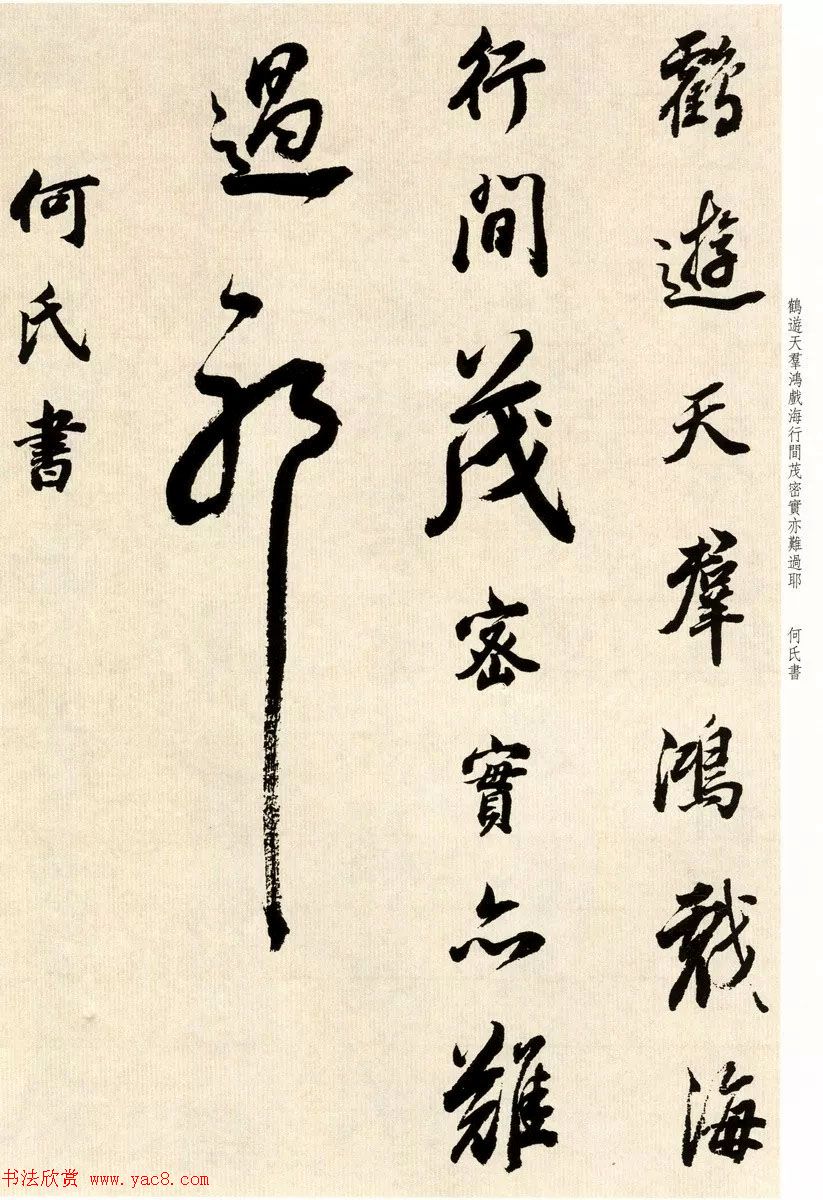 鶴遊天羣鴻戲海
行間茂密實亦難
過耶
何氏書
鶴遊天羣鴻戲海行間茂密實亦難過耶　何氏書
书法欣赏 www.yac8.com